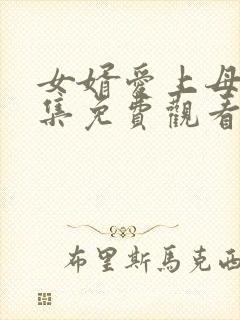 女婿愛上母
集免費觀看
布里斯馬克西